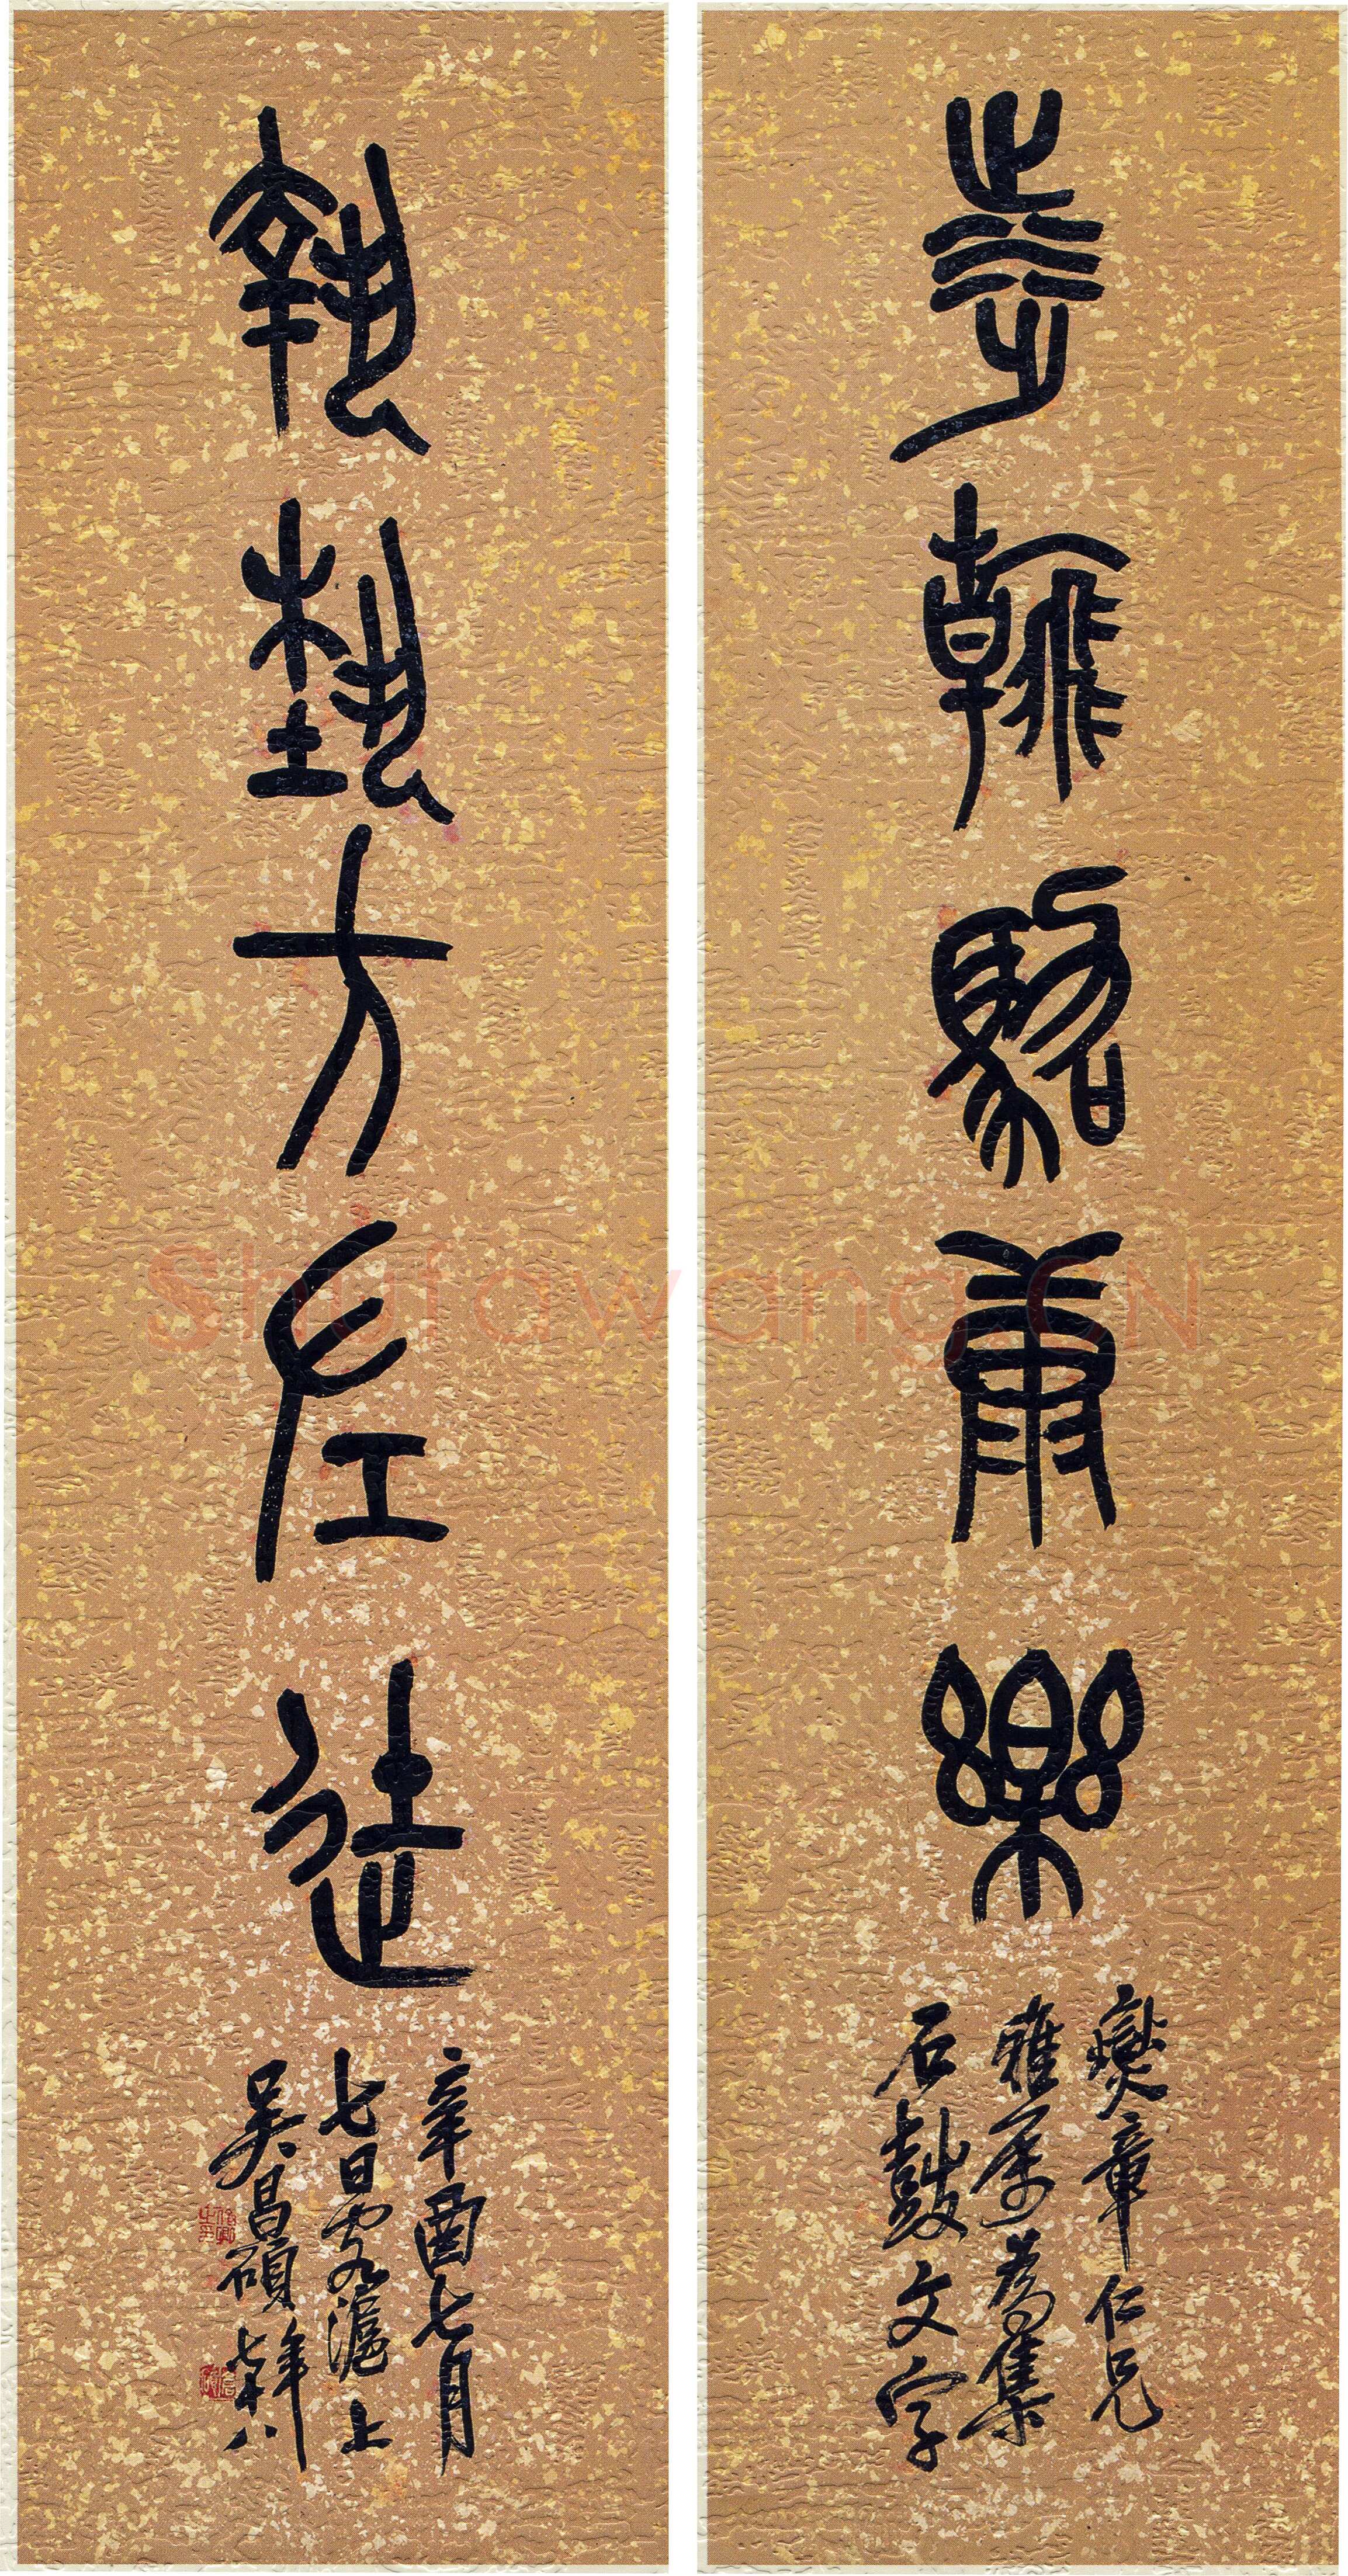 涉翰駱康樂
燮章仁兄
雅屬為集
石鼓文字
執藝方左徒
辛酉七月
七日滬上
吳昌碩
年七十八
Shufawang.CN